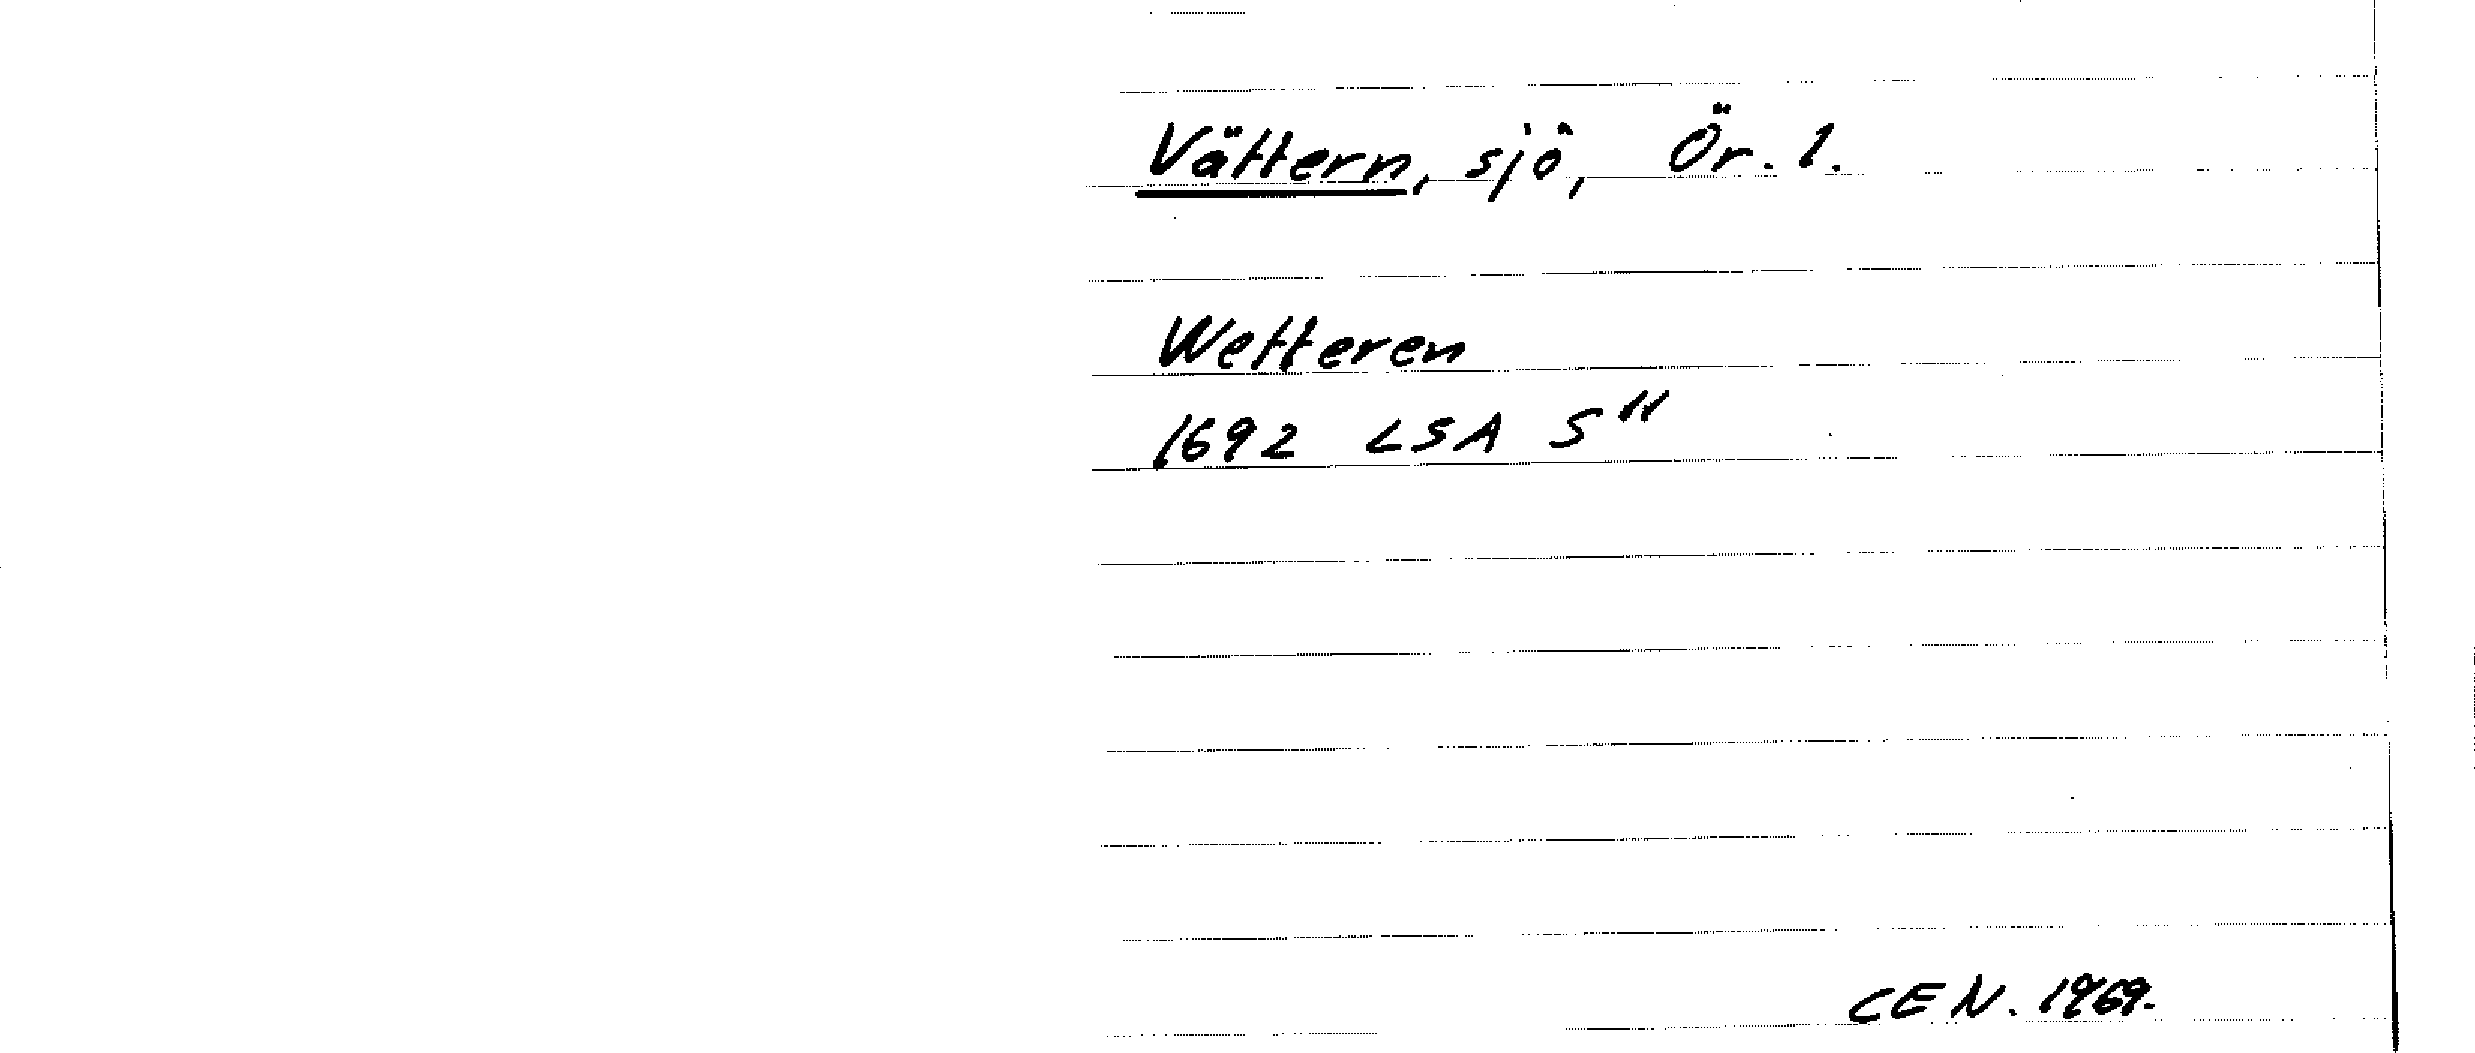 Vättern, sjö, Ör. l.
Wetteren
1692 LSA S"
CEN. 1969.